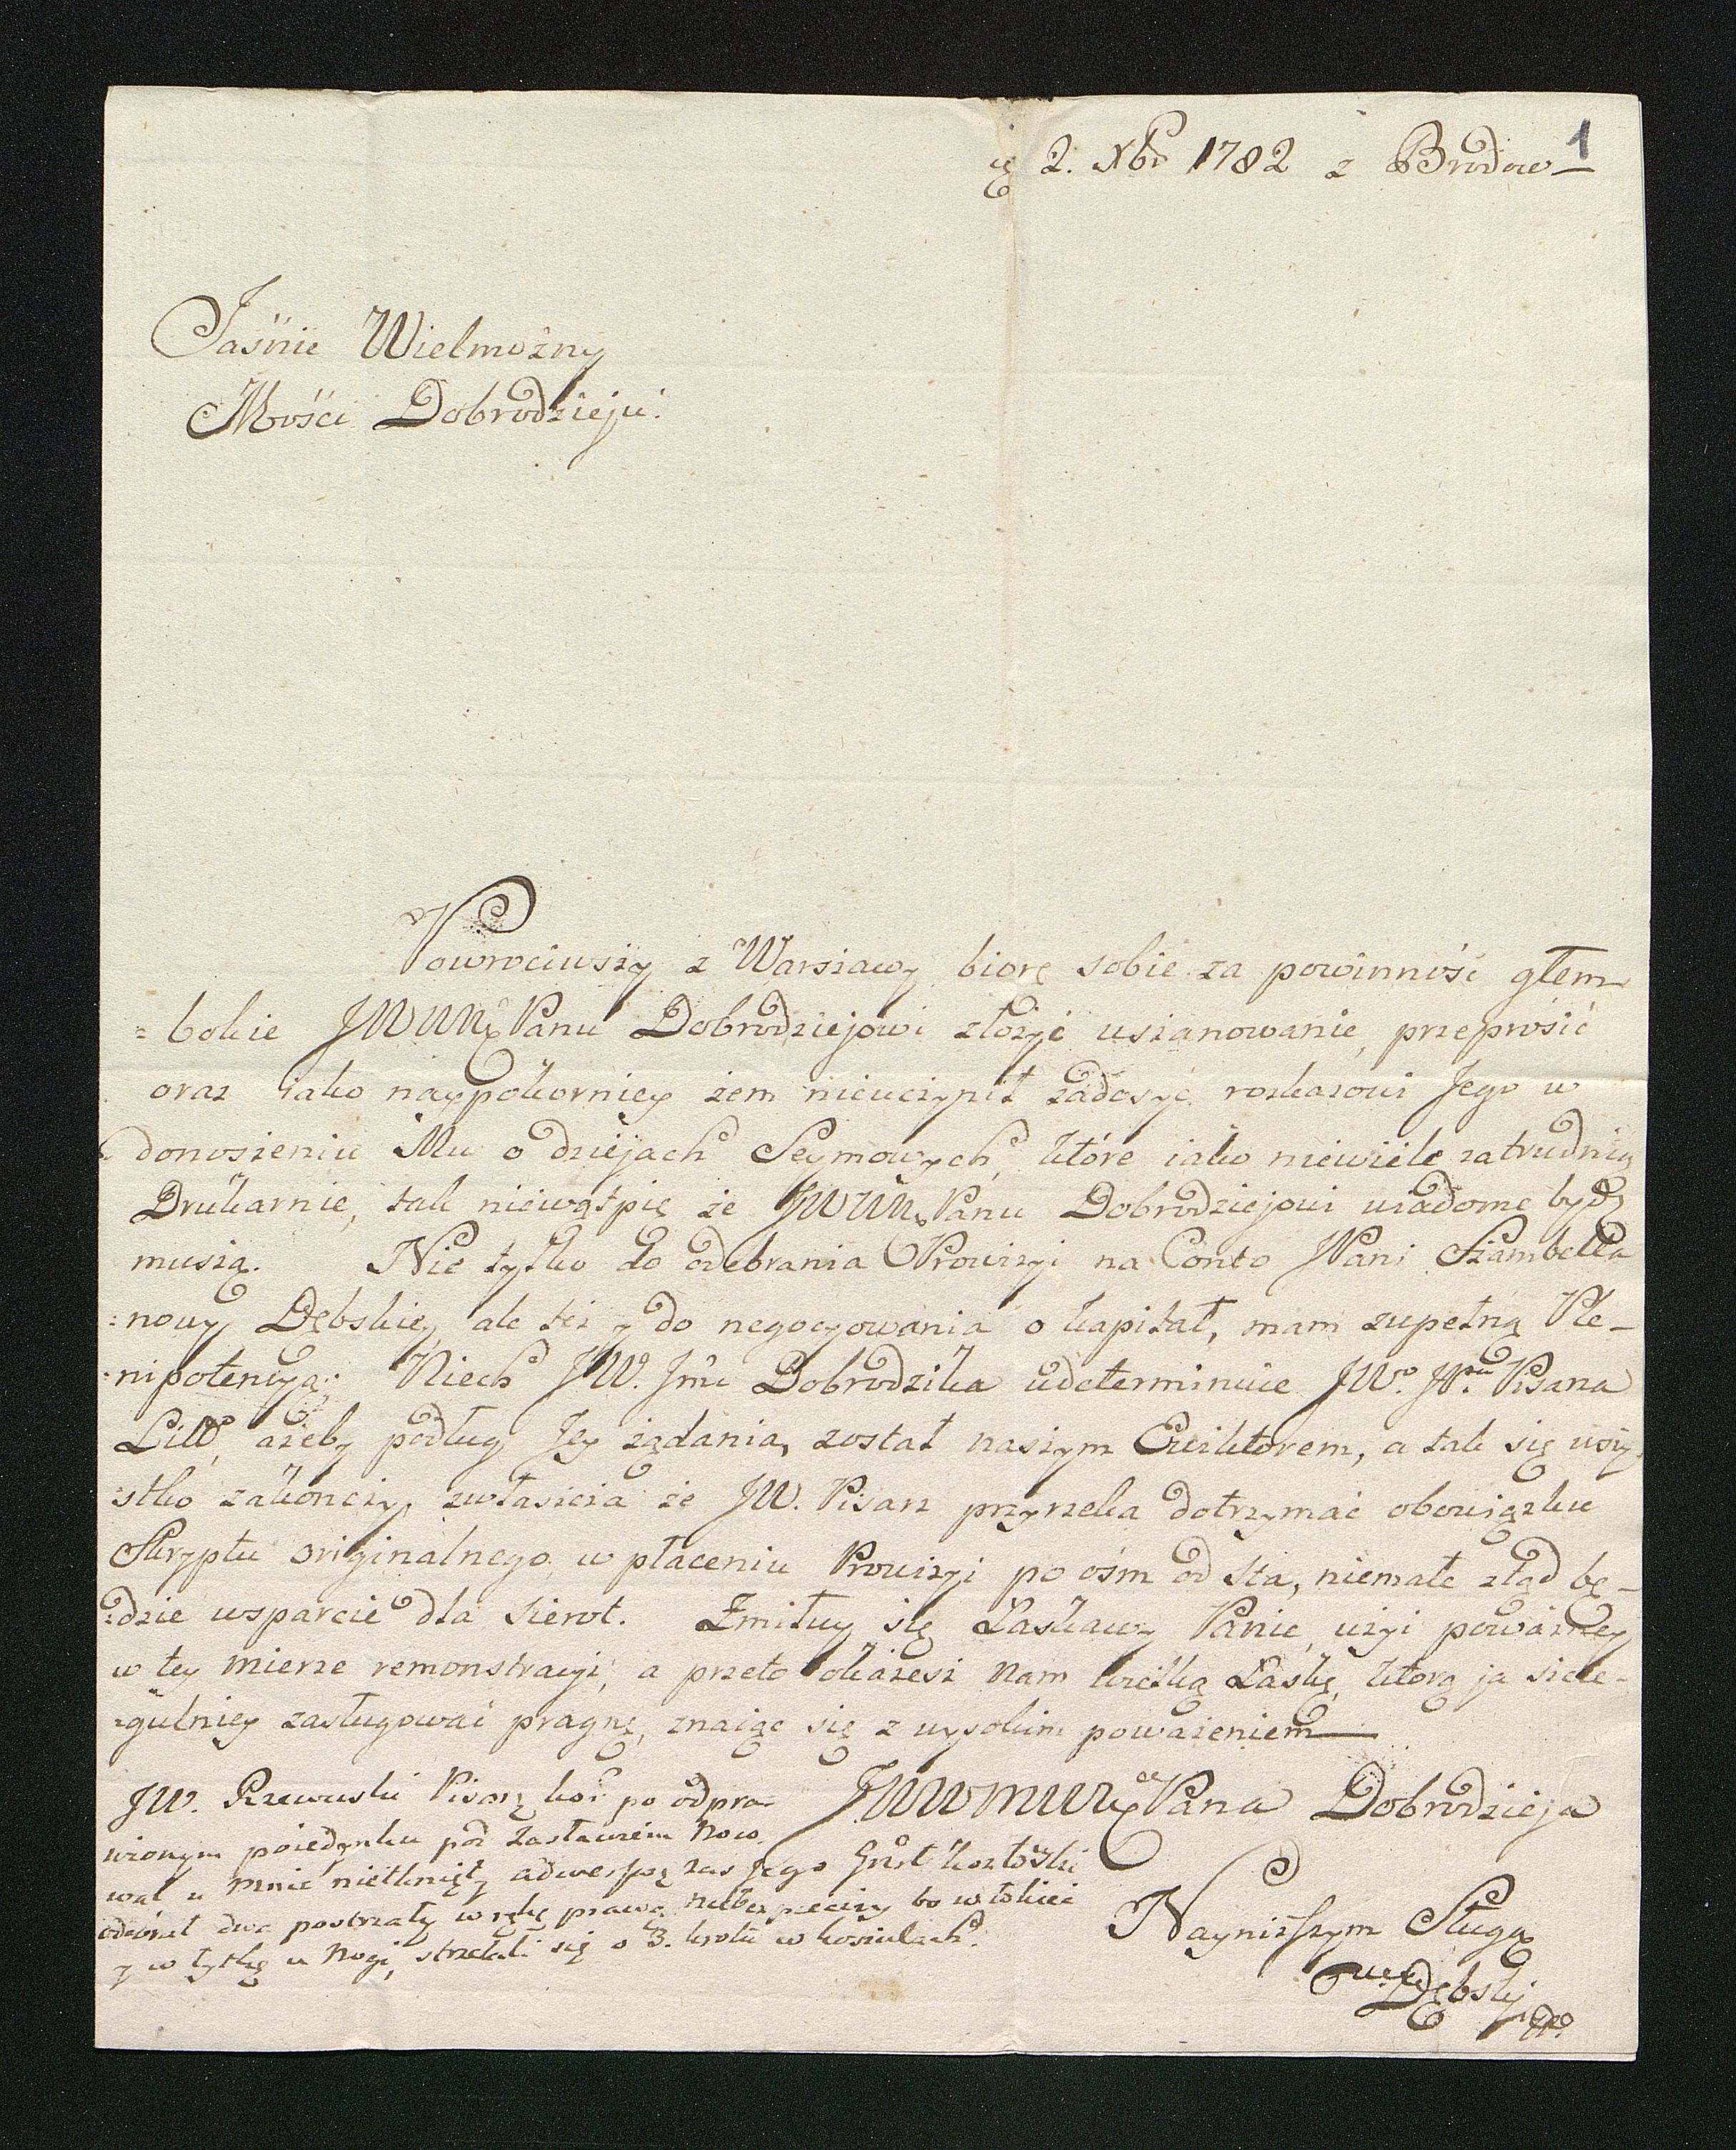 1
2. Xbr 1782 z Brodow
Jaśnie Wielmożny
Mości Dobrodzieju
Powrociwszy z Warszawy biorę sobie za powinność głem-
=bokie JWWM Panu Dobrodziejowi złożyć uszanowanie, przeprosić
oraz iako naypokorniey żem nieuczynił zadosyć rozkazowi Jego w
donoszeniu Mu o dziejach Seymowych, które iako niewiele zatrudnią
Drukarnie, tak niewątpię że JWWM Panu Dobrodziejowi wiadome bydź
muszą. Nie tylko do odebrania Prowizyi na Conto JPani Szambella
:nowy Dębskiey, ale też y do negocyowania o kapitał, mam zupełną Ple-
:nipotencyą; Niech JW. Jmc Dobrodzika udeterminuie JWo. Pisarza
Litt, ażeby podług Jey żądania, został naszym Exiktorem, a tak się wszy
:stko zakończy, zwłaszcza że JW. Pisarz przyrzeka dotrzymać obowiązku
Skryptu originalnego, w płaceniu Prowizyi po ośm od sta, niemałe ztąd bę-
:dzie wsparcie dla sierot. Zmiłuy się Łaskawy Panie, użyi poważney
w tey mierze remonstracyi, a przeto okażesz Nam wielką Łaskę, którą ja szcze-
:gulniey zasługować pragnę, znaiąc się z wysokim poważeniem
JWWM Pana Dobrodzieja
Nayniższym Sługą
Dębski
JW. Rzewuski Pisarz kor po odpra-
wionym poiedynku pod Zasławiem Noco-
wał u mnie nietknięty, adwersarz zas Jego Kozłoski
odebrał dwa postrzały w rękę prawą niebezpieczny bo w łokieć
y w łytkę u Nogi, strzelali się o 3. kroki w koszulach.